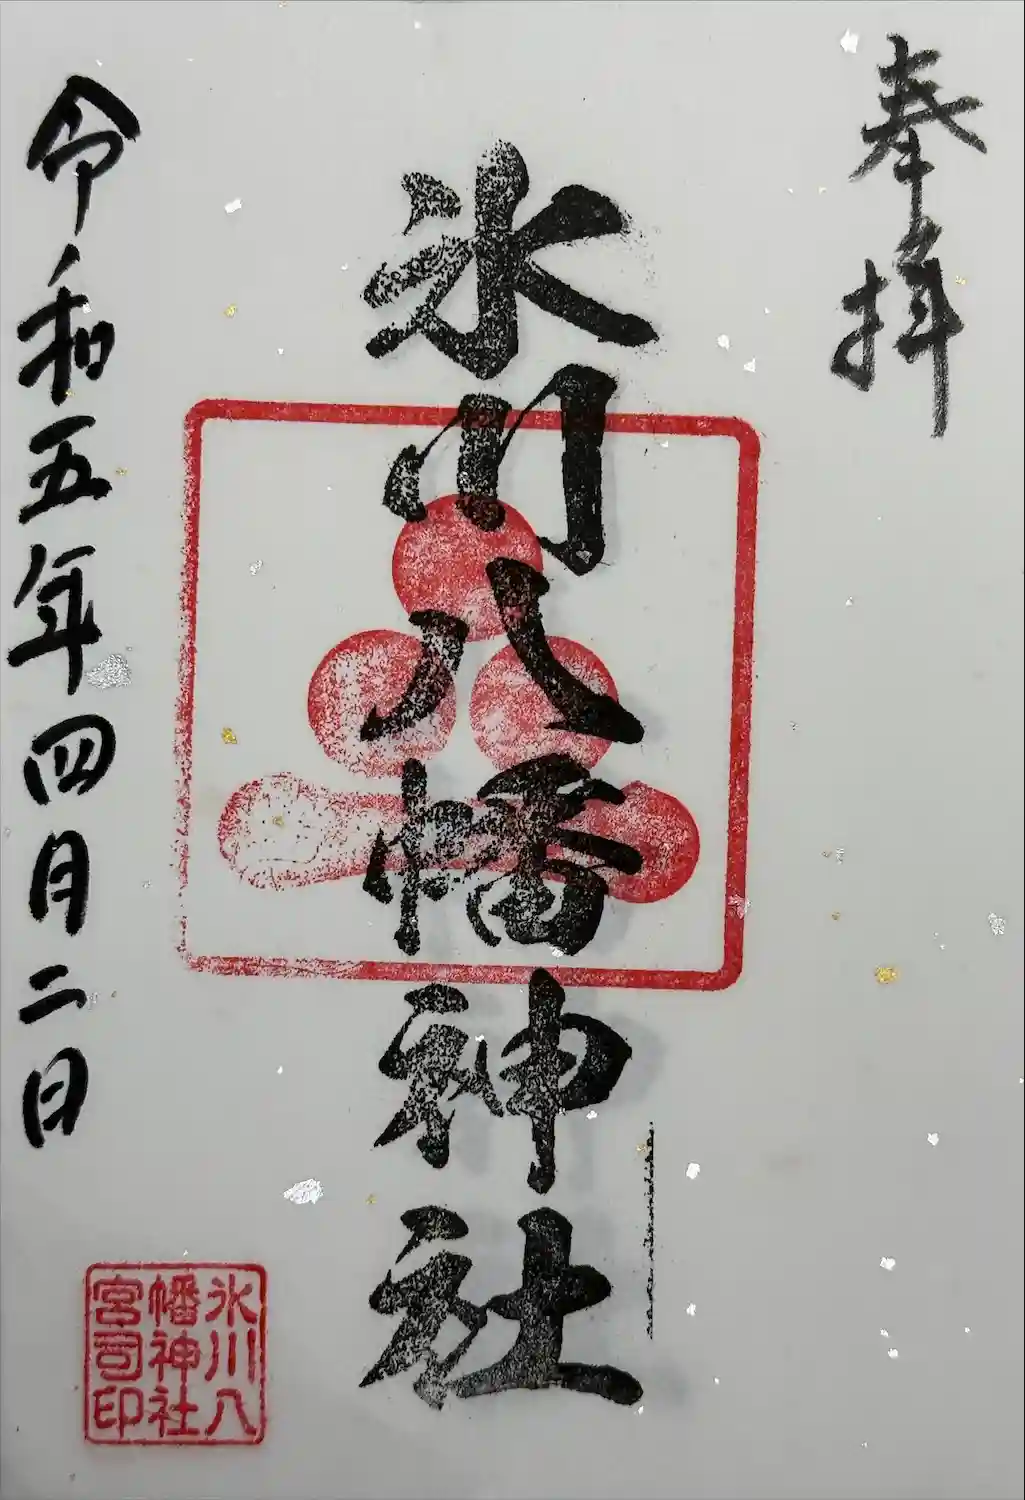 奉拝
氷川八幡神社
令和五年四月二日
氷川八
幡神社
宮司印